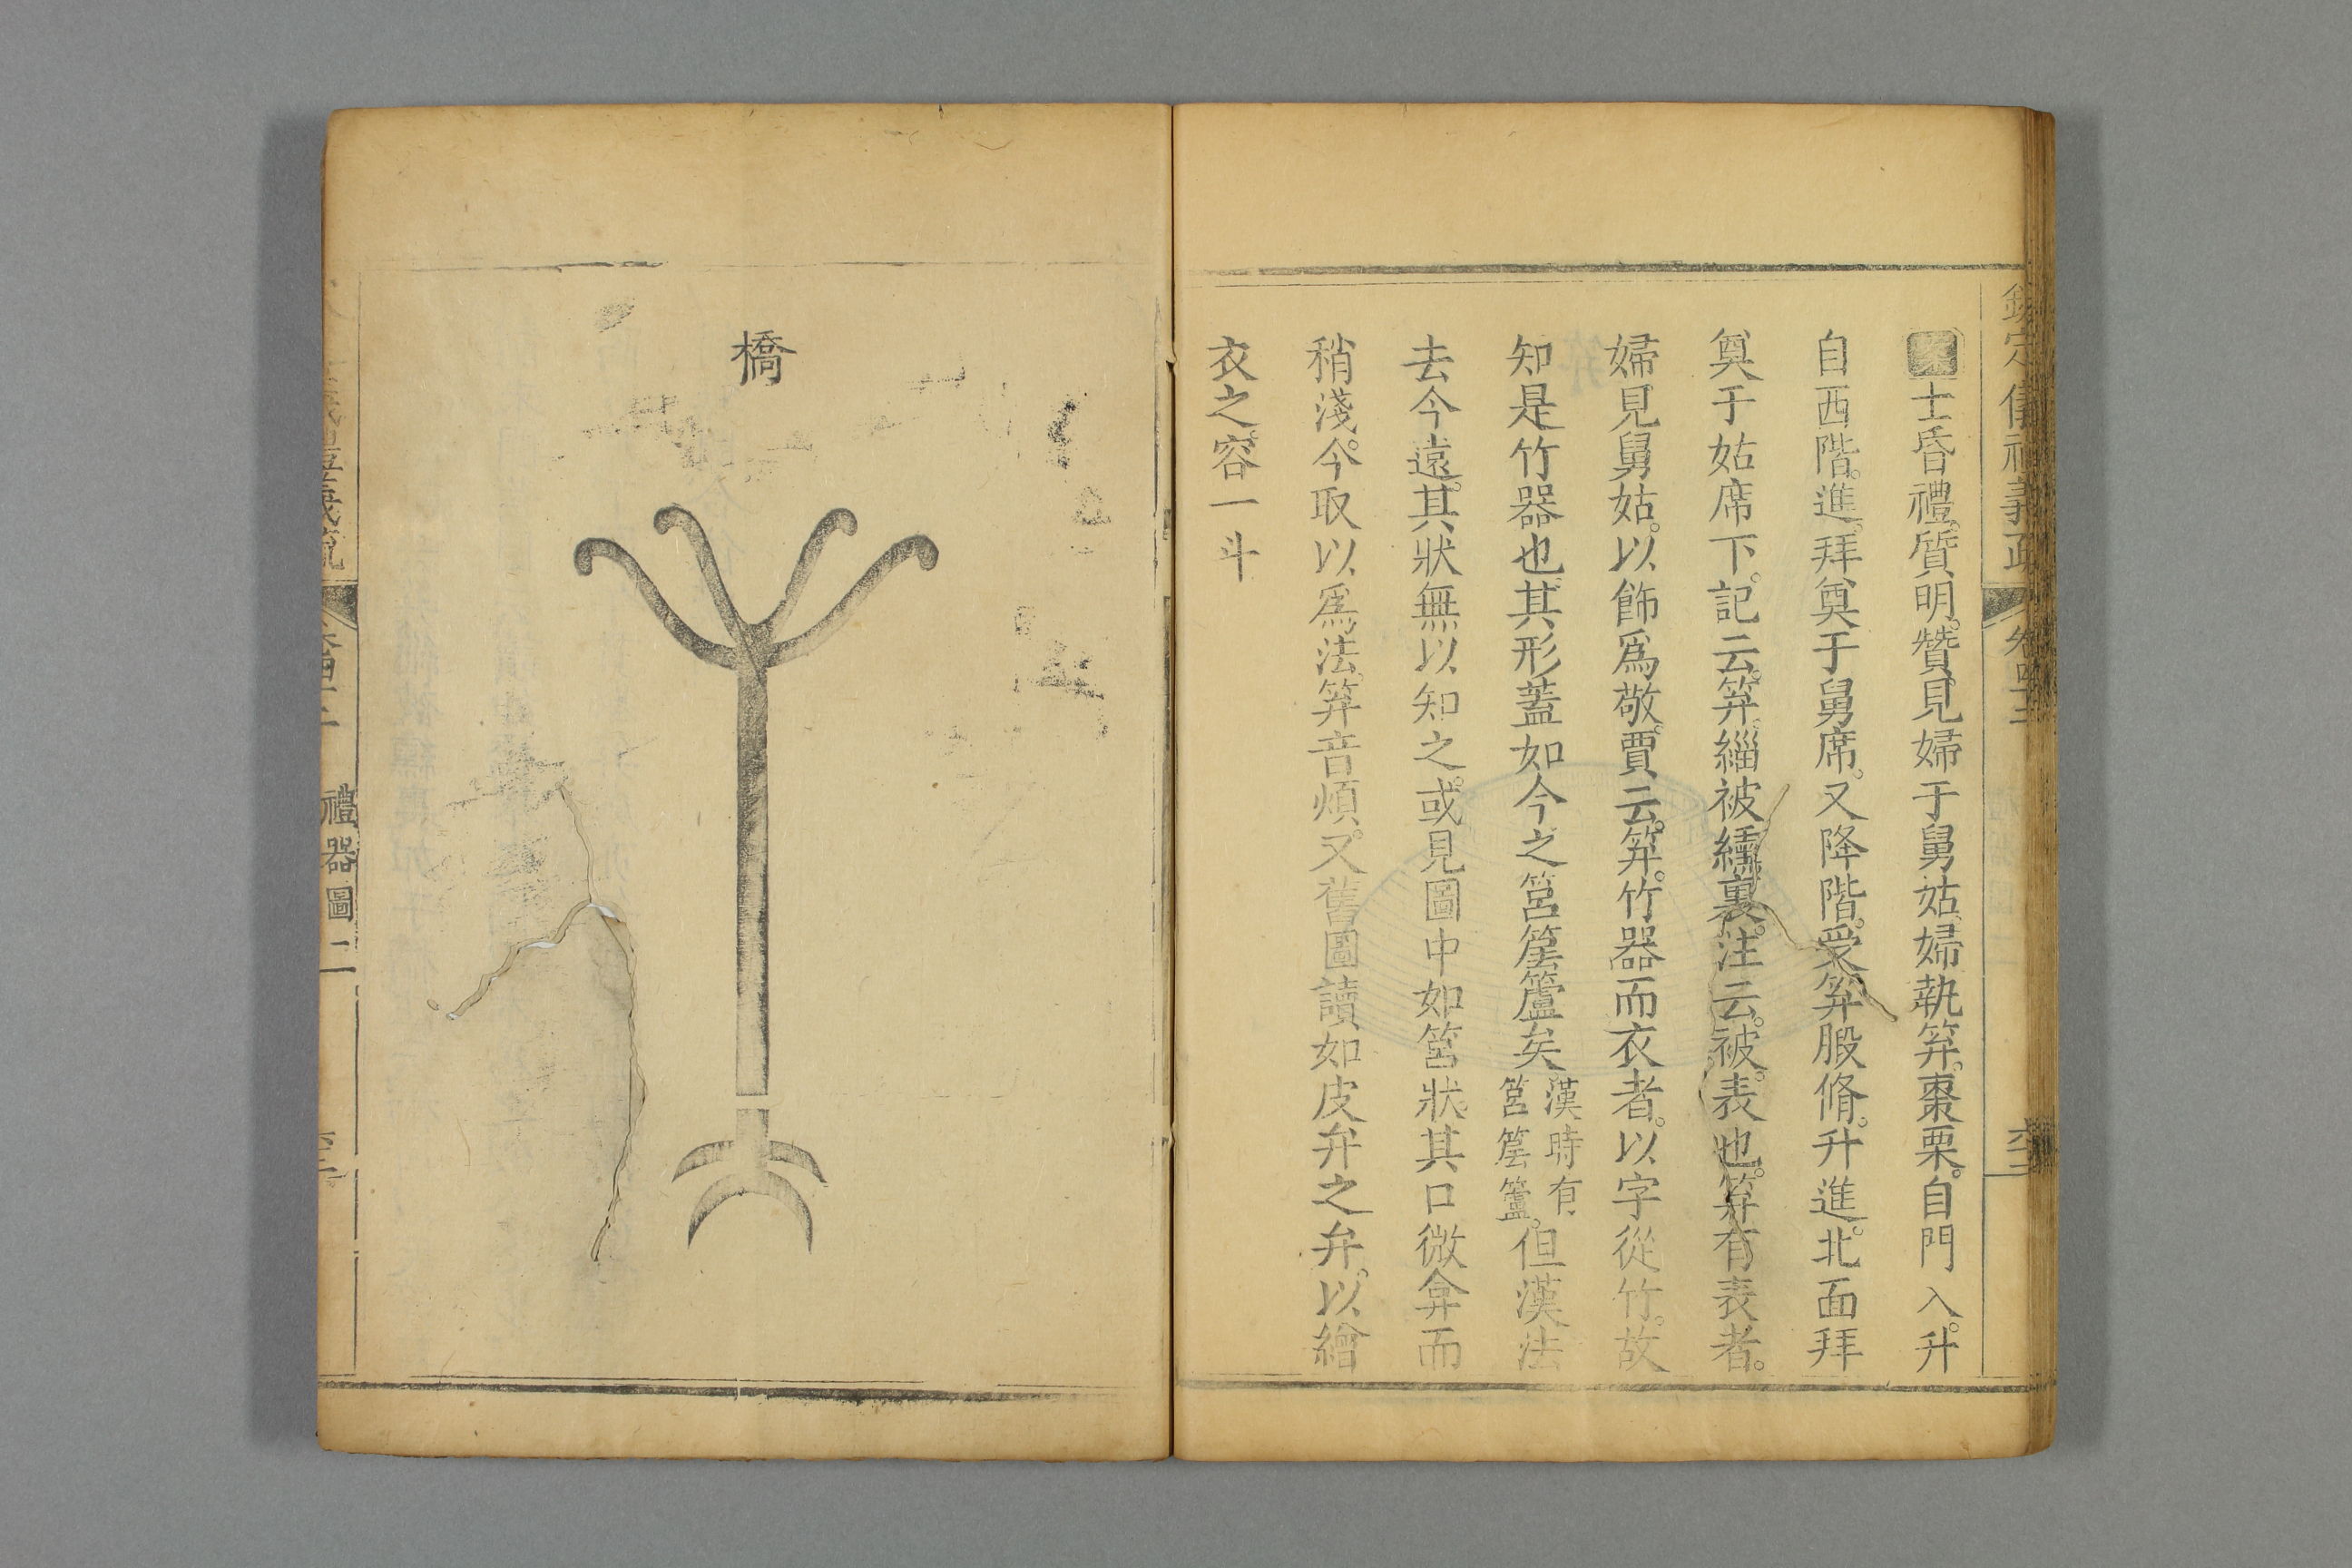 欽定儀禮義疏 卷四十二
案士昏禮質明贊見婦于舅姑婦執笲棗栗自門入升
自西階進拜奠于舅席又降階受笲腶脩升進北面拜
奠于姑席下記云笲緇被纁裏注云被表也笲有表者
婦見舅姑以飾為敬賈云笲竹器而衣者以字從竹故
知是竹器也其形蓋如今之筥䇠籚矣漢時有筥䇠籚但漢法
去今遠其狀無以知之或見圖中如筥狀其口微弇而
稍淺今取以為法笲音煩又舊圖讀如皮弁之弁以繒
衣之容一斗
橋
禮器圖二